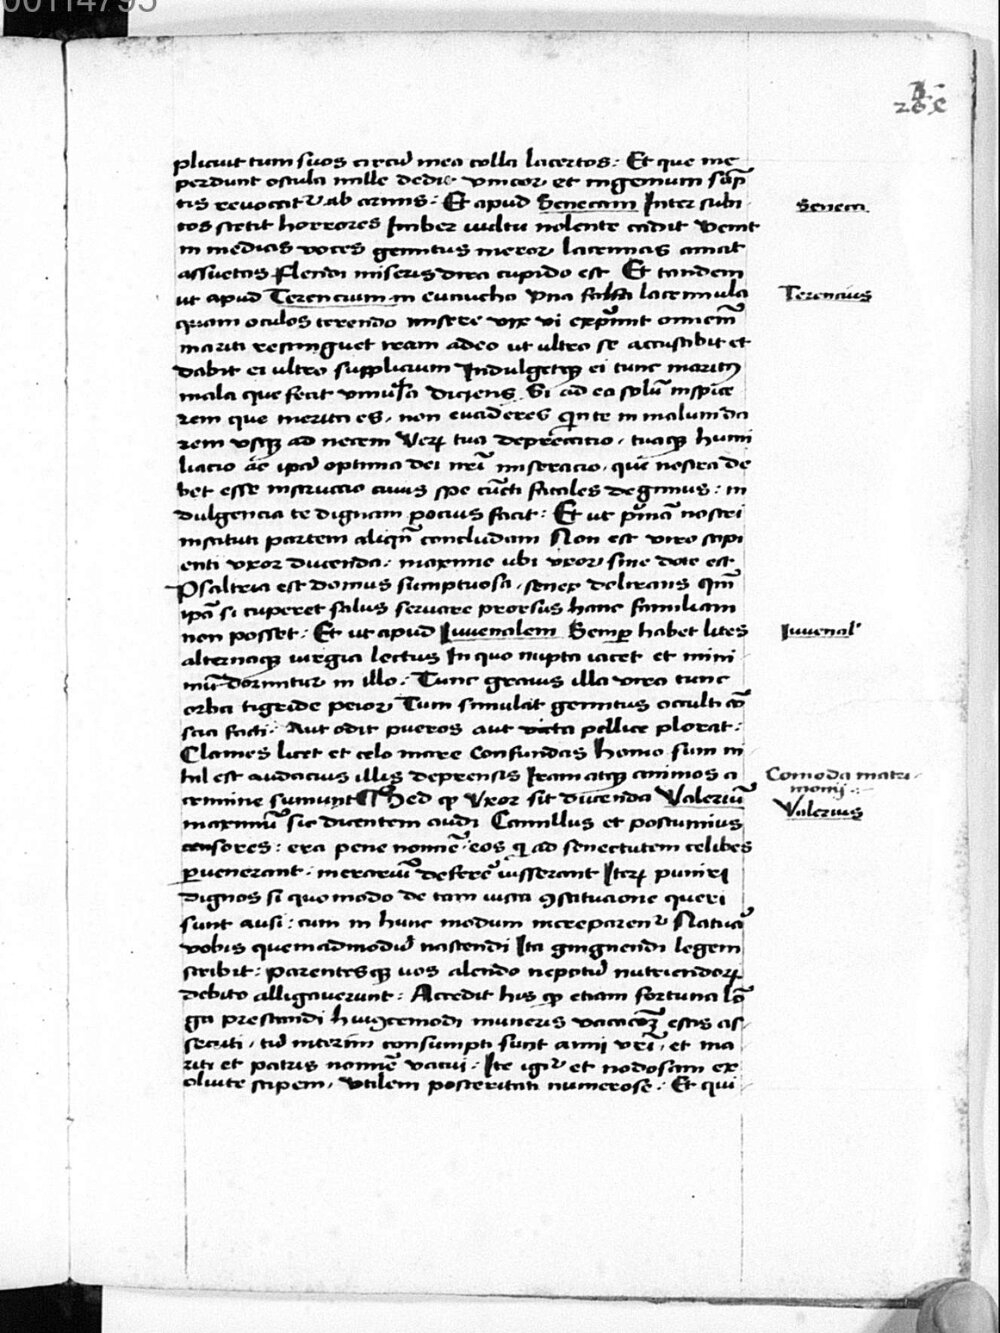 00114795
plicuit tum suos circū mea colla lacertos: Et que me
perdunt oscula mille dedit vincor, et ingenium sūp
tis revocat᷑ ab armis: Et apud Senecam Inter subi
Seneca
tos stetit horrores Imber vultu nolente cadit Venit
in medias voces gemitus meror lacrimas amat
assuetas flendi miseris dira cupido est Et tandem
ut apud Terencium in eunucho Una falsa lacrimula
Terencius
quam oculos terendo misere vix vi exp̄ssit om̄em
mariti restinguet iram adeo ut ultro se accusabit et
dabit ei ultro supplicium Indulgetqꝫ ei tunc maritꝰ
mala que fecit dicens Si ad ea solū inspice
rem que merita es, non evaderes q̄n te in malum da
rem vsqꝫ ad necem Verꝝ tua deprecatio, tuaqꝫ humi
liacio ac ip̄a optima dei nr̄i miseracio, que nostra de
bet esse instructio cuius spe cūcti fatales degimus: in
dulgencia te dignam pocius facit: Et ut p̄mā nostri
instituti partem aliqn̄ concludam Non est viro sapi
enti vxor ducenda: maxime ubi vxor, sine dote est
Psaltria est domus sumptuosa, senex delirans qm̄
ip̄a si cuperet salus servare prorsus hanc familiam
non posset: Et ut apud Iuvenalem Semꝑ habet lites
Iuvenal'
alternaqꝫ iurgia lectus In quo nupta iacet et mini
mū dormitur in illo: Tunc gravis illa viro tunc
orba tigride peior, Tum simulat gemitus occulti cō
scia facti: Aut odit pueros aut victa pellice plorat:
Clames licet et celo mare confundas homo sum ni
hil est audacius illis deprensis Iram atqꝫ animos a
Comoda matri
monij:
crimine sumunt ¶ Sed ꝙ Vxor sit ducenda Valeriū
Valerius
maximū sic dicentem audi Camillus et postumius
censores: era pene nomīe eos qi ad senectutem celibes
ꝑvenerant: in erariū deferre iusserant Iterꝝ puniri
dignos si quo modo de tam iusta ꝯstitucione queri
sunt ausi: cum in hunc modum increparent᷑ Natura
vobis quemadmodū nascendi Ita gingnendi legem
scribit: Parentesqꝫ vos alendo nepotū nutriendorꝝ
debito alligaverunt: Accedit his ꝙ etiam fortuna lō
ga prestandi huiꝰcemodi muneris vacacōꝫ estis as
secuti, cū interim consumpti sunt anni vr̄i, et ma
riti et patris nomīe vacui: Ite igi᷑ et nodosam ex
olvite stipem, Vtilem posteritati numerose: Et qui